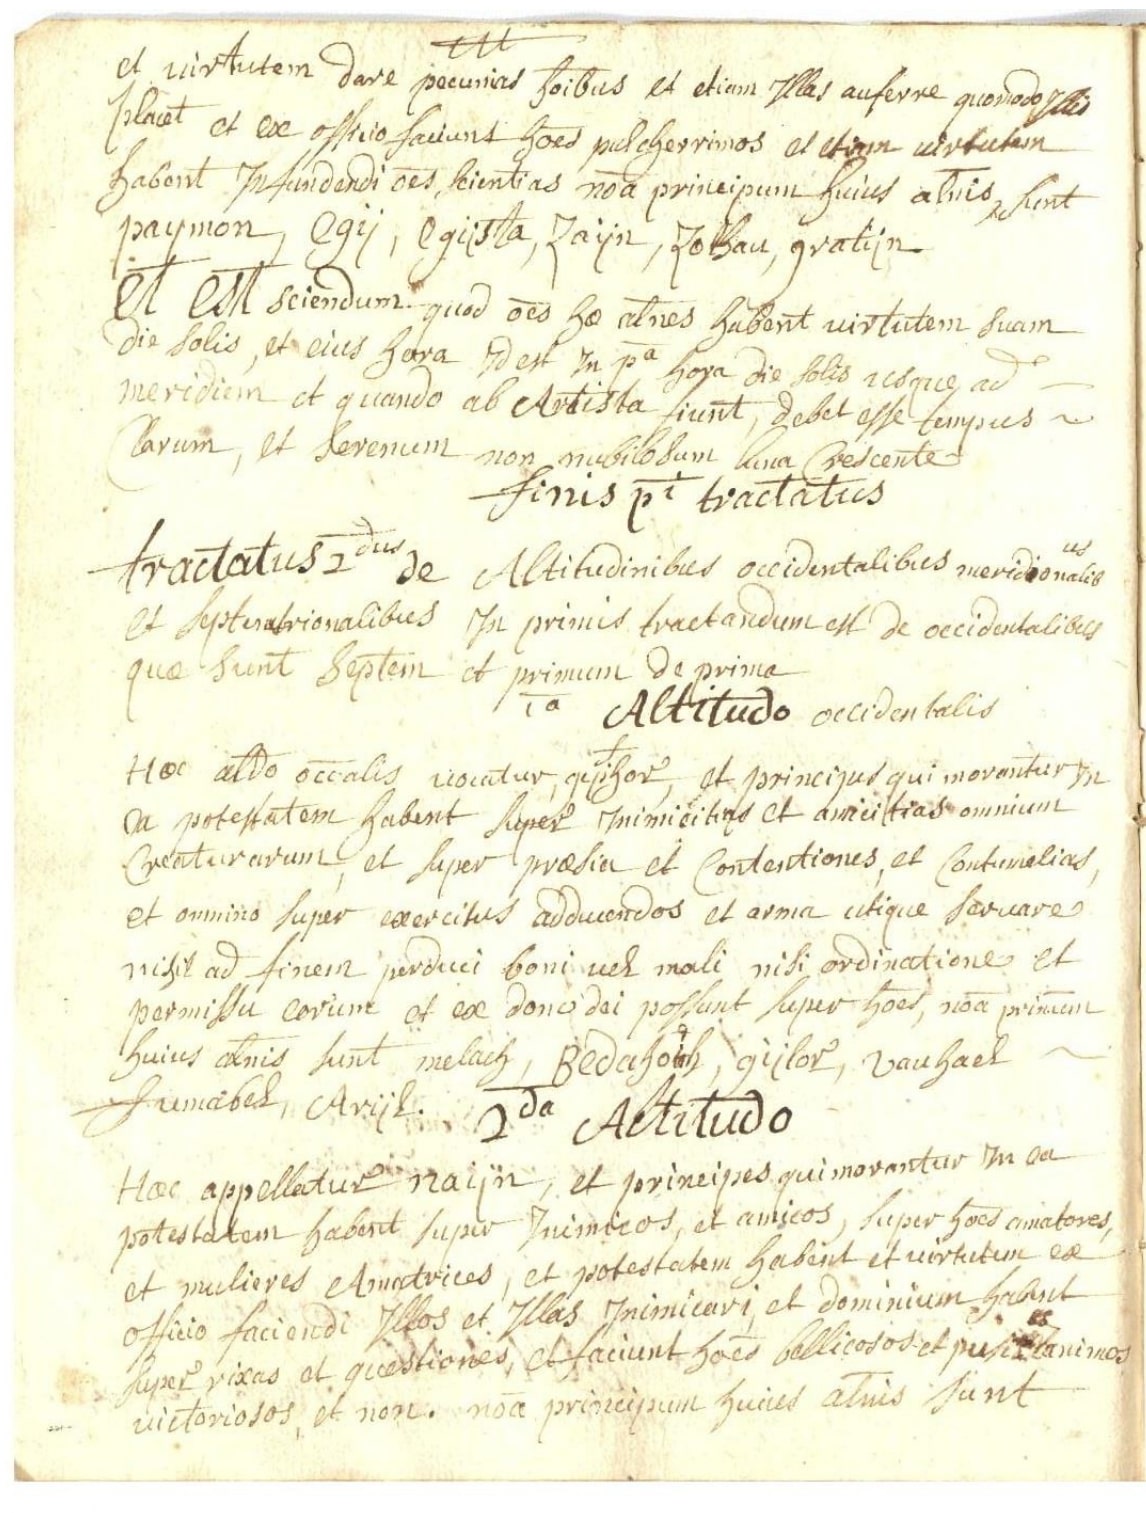 et virtutem dare pecunias hoibus et etiam Illas auferre quomodo Illis
placet et ex officio faciunt hoes pulcherrimos et etiam virtutem
habent Infundendi oes scientias noa principum huius atnis sunt
paymon, Egij, Egijsta, Zaijn, Zothau, gratijn
Et Est sciendum quod oes hæ atnes habent virtutem suam
die solis, et eius hora Id est In pa hora die solis usque ad
meridiem et quando ab Artista fiunt, debet esse tempus ~
Clarum, et serenum non nubilosum luna Crescente
finis pi tractatus
tractatus 2dus de Altitudinibus occidentalibus meridionalibus
et septentrionalibus In primis tractandum est de occidentalibus
quæ sunt septem et primum de prima
1a Altitudo occidentalis
Hæc altdo occalis vocatur, et principes qui morantur In
ea potestatem habent super Inimicitias et amicitias omnium
Creaturarum, et super præsia et Contentiones, et Contumelias,
et omnino super exercitus adducendos et arma utique servare
nihil ad finem perduci boni vel mali nisi ordinatione et
permissu eorum et ex dono dei possunt super hoes, noa prinum
huius atnis sunt melach, Bedahoth, gijlor, vauhael ~
fumabel, Arijl. 2da Altitudo
Hæc appellatur naijn, et principes qui morantur In ea
potestatem habent super Inimicos, et amicos, super hoes amatores,
et mulieres Amatrices, et potestatem habent et virtutem ex
officio faciendi Illos et Illas Inimicari, et dominium habent
super rixas et quæstiones, et faciunt hoes bellicosos et pusillanimos
victoriosos, et non. noa principum huius atnis sunt